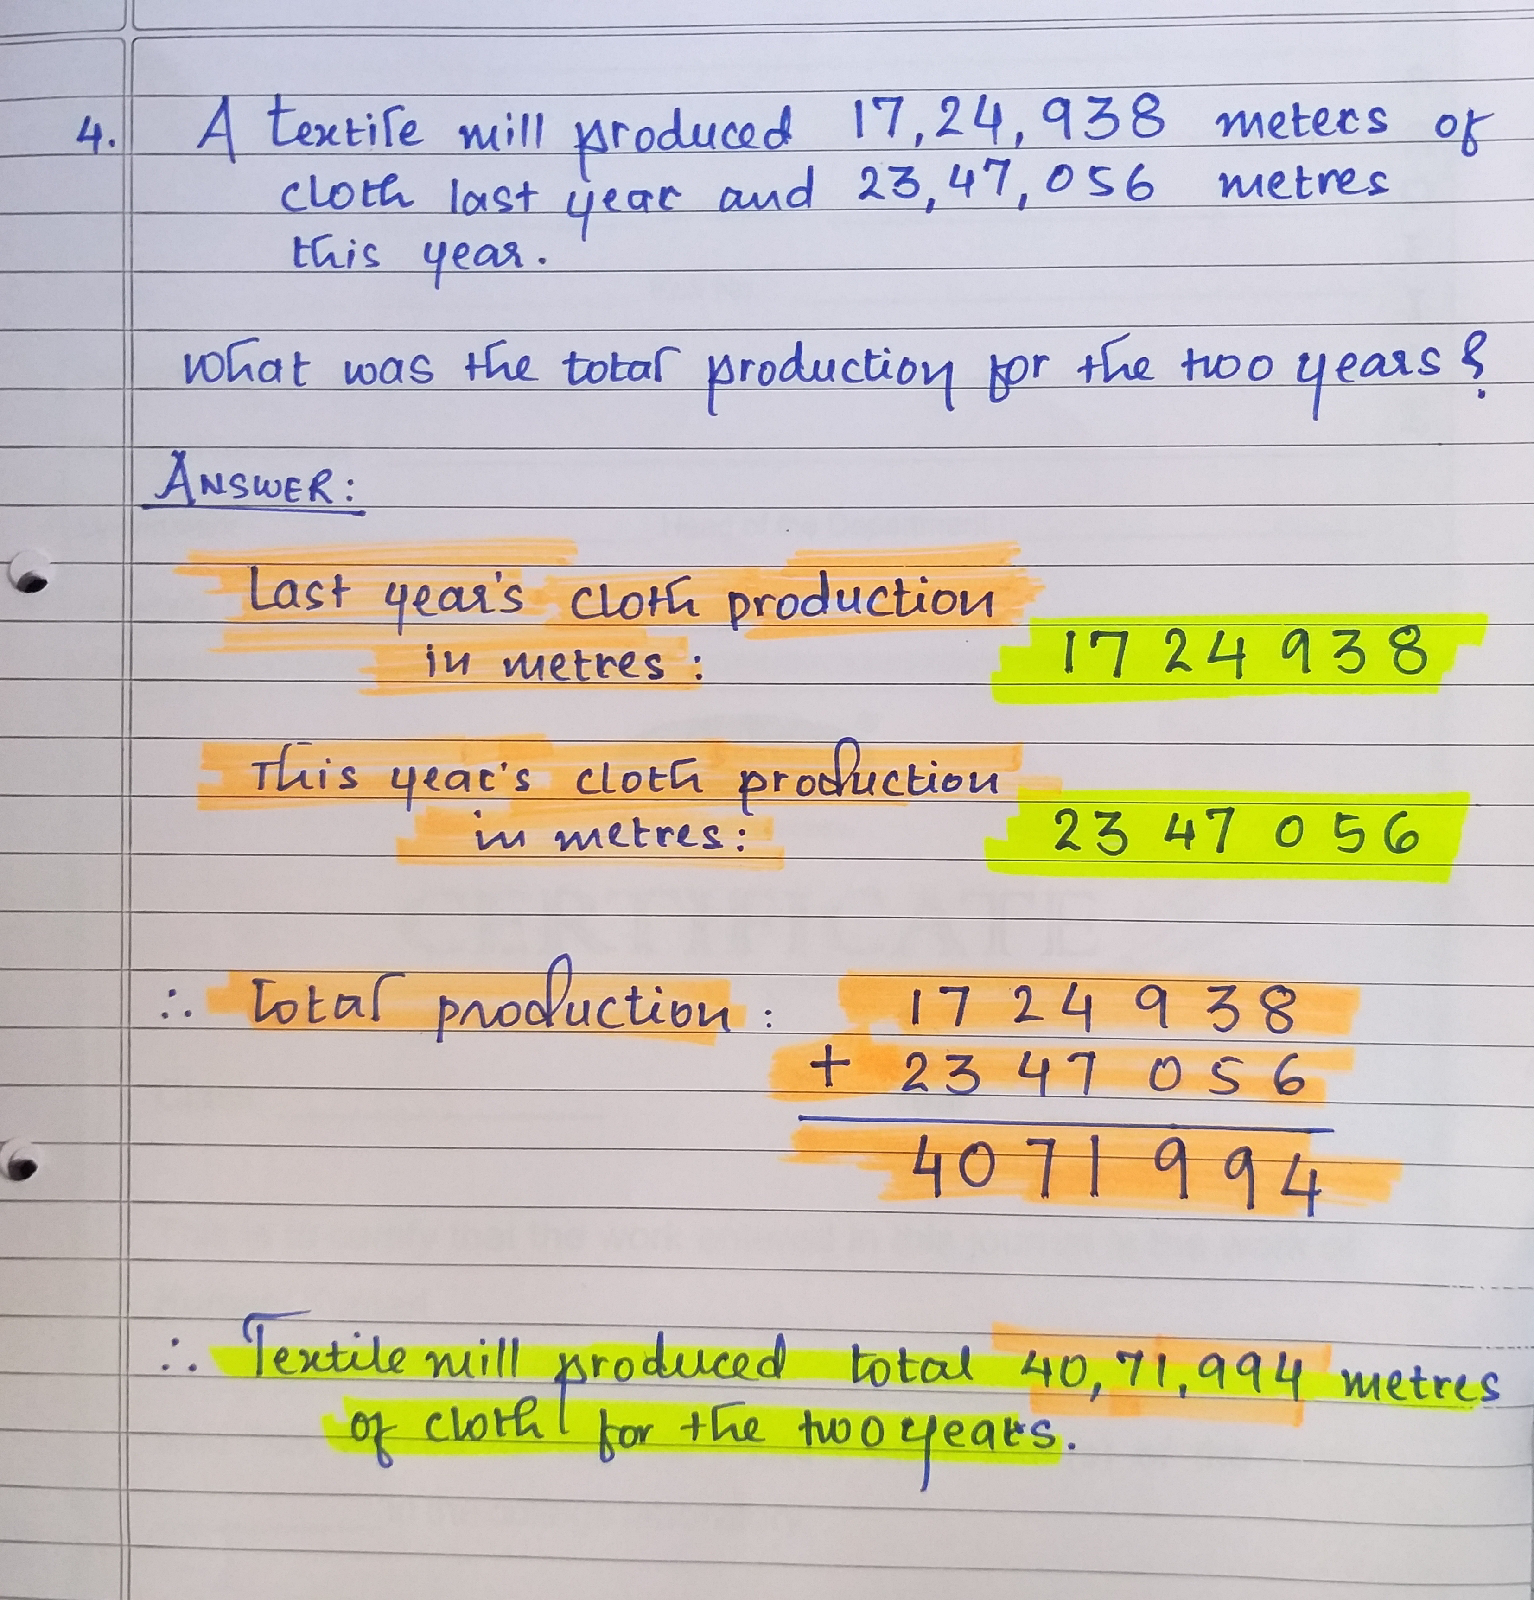 4. A textile mill produced 17,24,938 meters of
cloth last year and 23,47,056 metres
this year.
What was the total production for the two years?
ANSWER:
Last year's cloth production
in metres : 17 24 938
This year's cloth production
in metres: 23 47 056
∴ Total production : 17 24 938
+ 23 47 056
40 71 994
∴ Textile mill produced total 40,71,994 metres
of cloth for the two years.